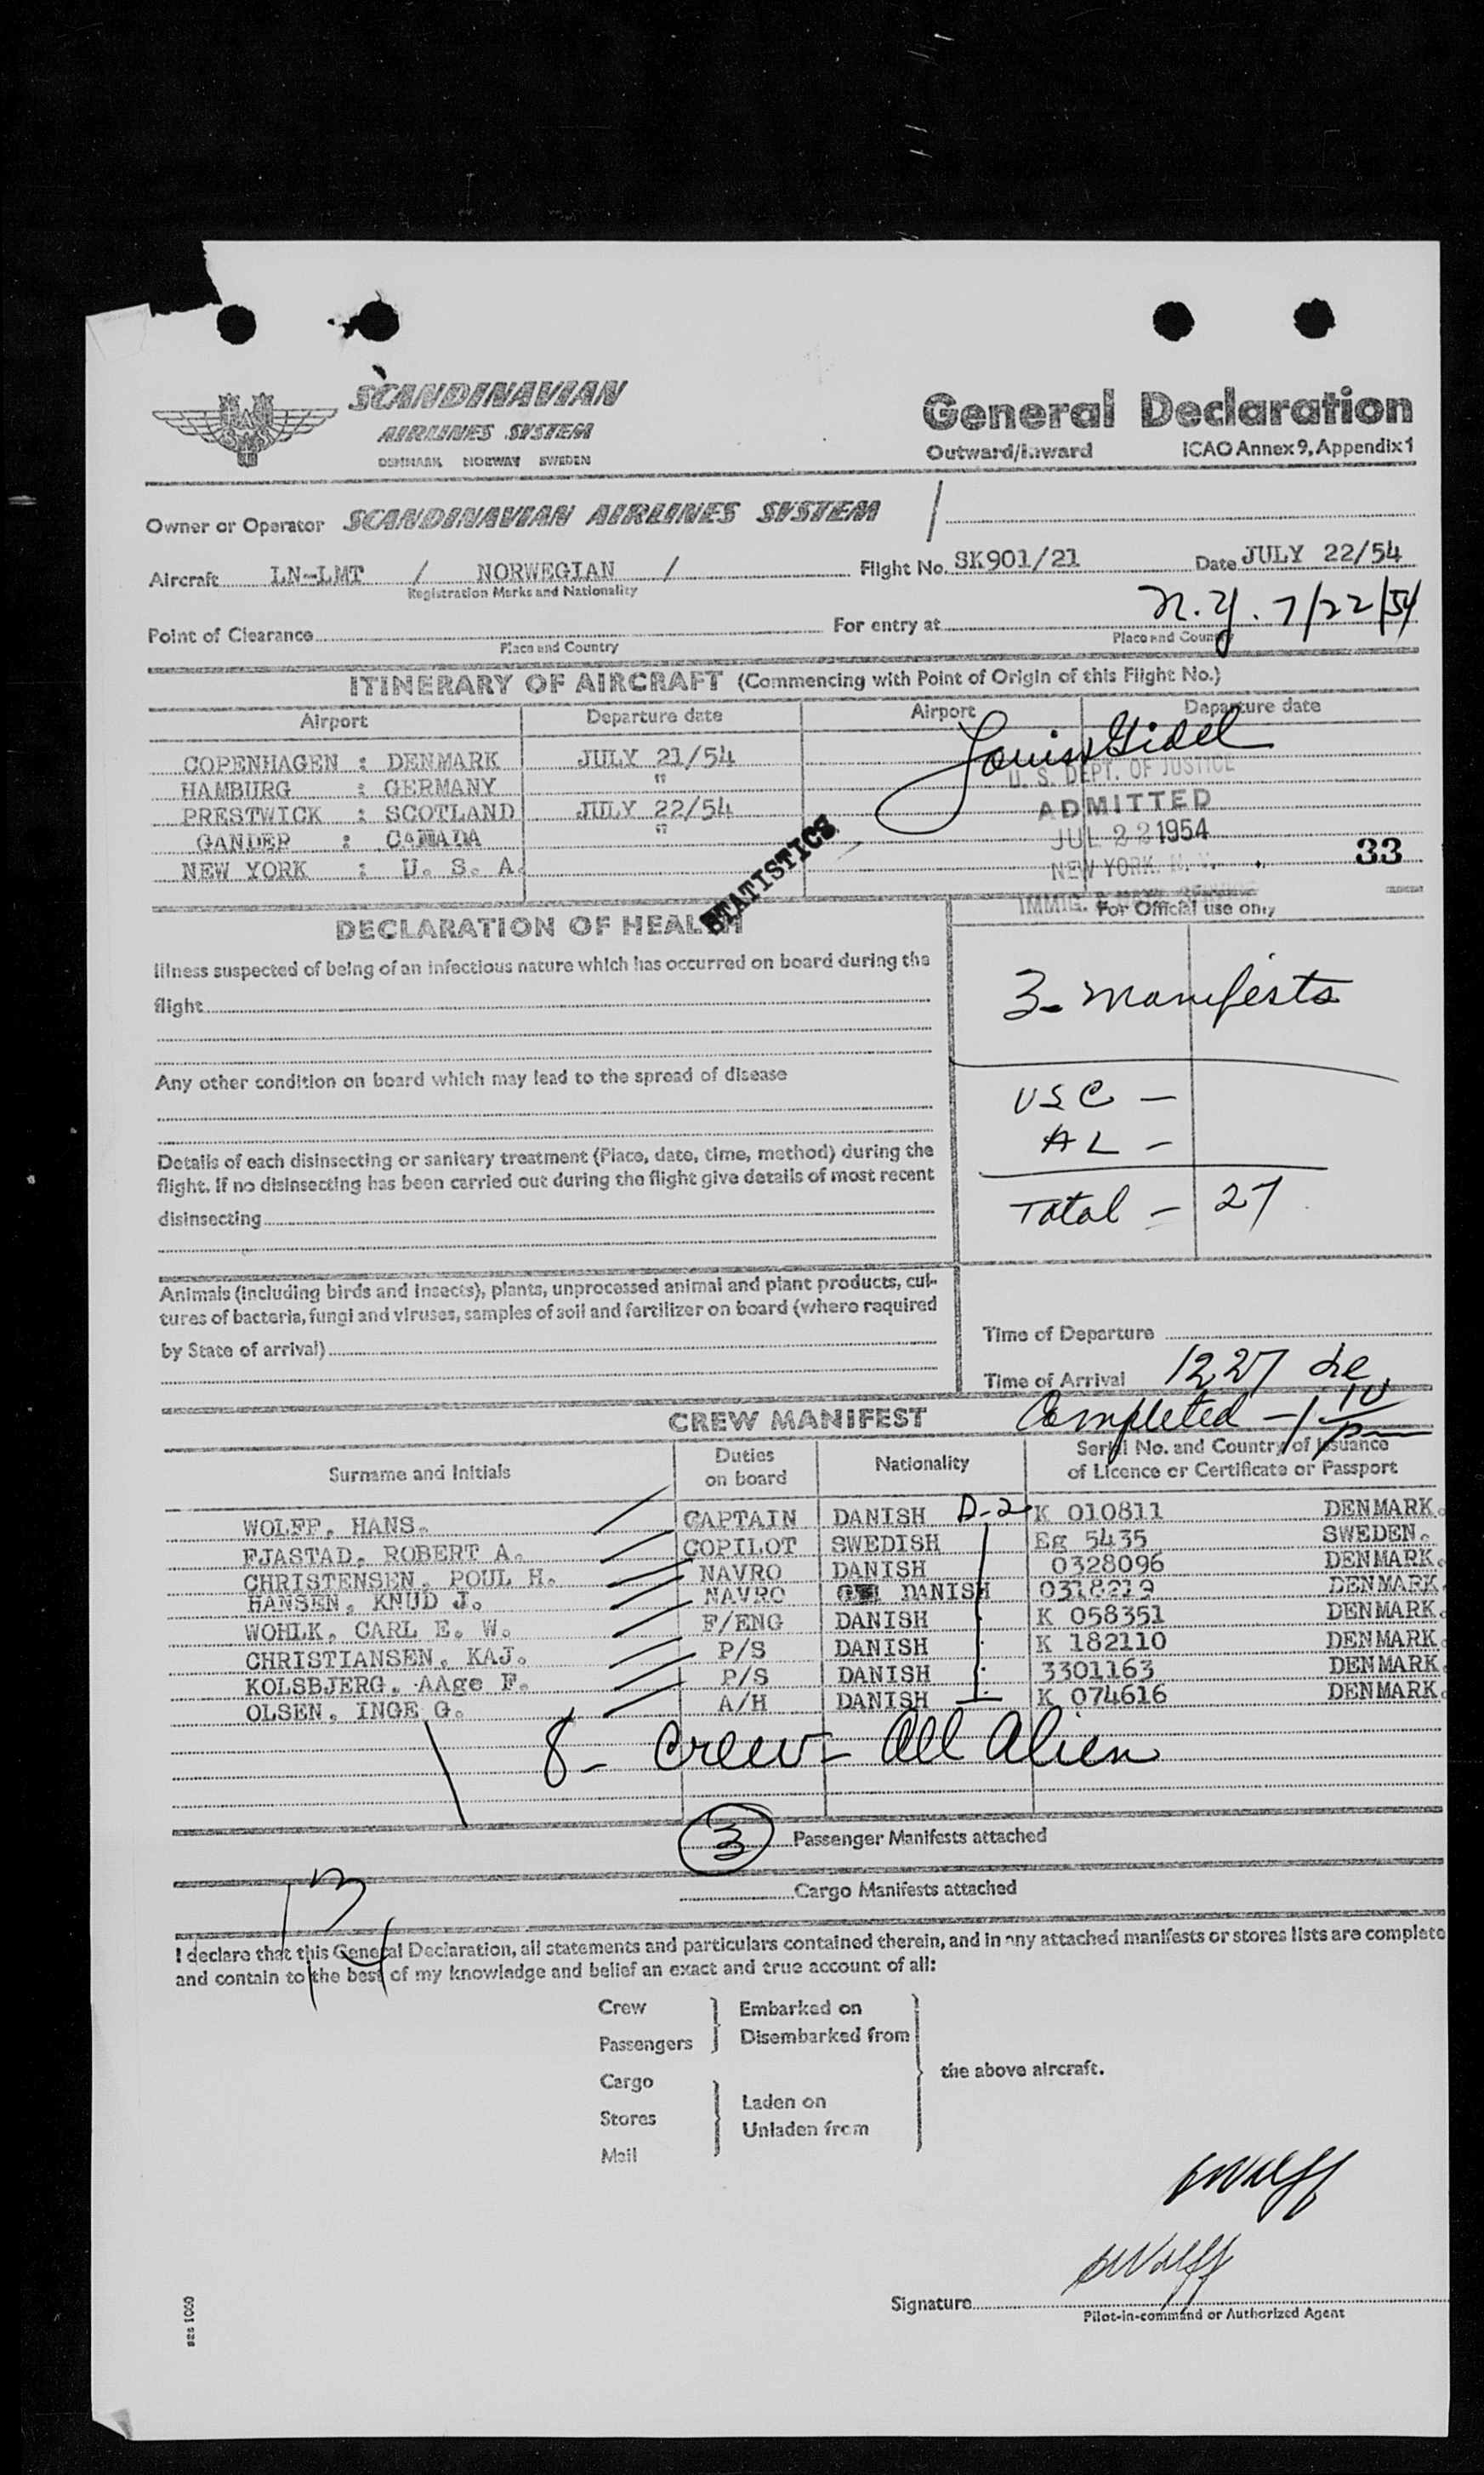 SCANDINAVIAN
AIRLINES SYSTEM
DENMARK NORWAY SWEDEN
General Declaration
Outward/Inward ICAO Annex 9, Appendix 1
Owner or Operator SCANDINAVIAN AIRLINES SYSTEM /
Aircraft LN-LMT / NORWEGIAN / Flight No. SK901/21 Date JULY 22/54
Registration Marks and Nationality
Point of Clearance For entry at N.Y. 7/22/54
Place and Country Place and Country
ITINERARY OF AIRCRAFT (Commencing with Point of Origin of this Flight No.)
Airport Departure date Airport Departure date
COPENHAGEN : DENMARK JULY 21/54
HAMBURG : GERMANY "
PRESTWICK : SCOTLAND JULY 22/54
GANDER : CANADA "
NEW YORK : U. S. A.
U. S. DEPT. OF JUSTICE
ADMITTED
JUL 22 1954
NEW YORK, N. Y.
IMMIG.
33
STATISTICS
DECLARATION OF HEALTH
For Official use only
Illness suspected of being of an infectious nature which has occurred on board during the
flight
Any other condition on board which may lead to the spread of disease
Details of each disinsecting or sanitary treatment (Place, date, time, method) during the
flight. If no disinsecting has been carried out during the flight give details of most recent
disinsecting
3- manifests
USC -
AL -
Total - 27
Animals (including birds and insects), plants, unprocessed animal and plant products, cul-
tures of bacteria, fungi and viruses, samples of soil and fertilizer on board (where required
by State of arrival)
Time of Departure
Time of Arrival 1227
Completed - 1 10/pm
CREW MANIFEST
Surname and Initials Duties on board Nationality Serial No. and Country of Issuance of Licence or Certificate or Passport
WOLFF, HANS. CAPTAIN DANISH D-2 K 010811 DENMARK.
FJASTAD, ROBERT A. COPILOT SWEDISH Eg 5435 SWEDEN.
CHRISTENSEN, POUL H. NAVRO DANISH 0328096 DENMARK.
HANSEN, KNUD J. NAVRO DANISH 0318219 DENMARK.
WOHLK, CARL E. W. F/ENG DANISH K 058351 DENMARK.
CHRISTIANSEN, KAJ. P/S DANISH K 182110 DENMARK.
KOLSBJERG, AAge F. P/S DANISH 3301163 DENMARK.
OLSEN, INGE G. A/H DANISH K 074616 DENMARK.
8- Crew- All Alien
3 Passenger Manifests attached
Cargo Manifests attached
I declare that this General Declaration, all statements and particulars contained therein, and in any attached manifests or stores lists are complete
and contain to the best of my knowledge and belief an exact and true account of all:
Crew
Passengers
Embarked on
Disembarked from
Cargo
Stores
Mail
Laden on
Unladen from
the above aircraft.
HWolff
HWolff
Signature
Pilot-in-command or Authorized Agent
sas 1000